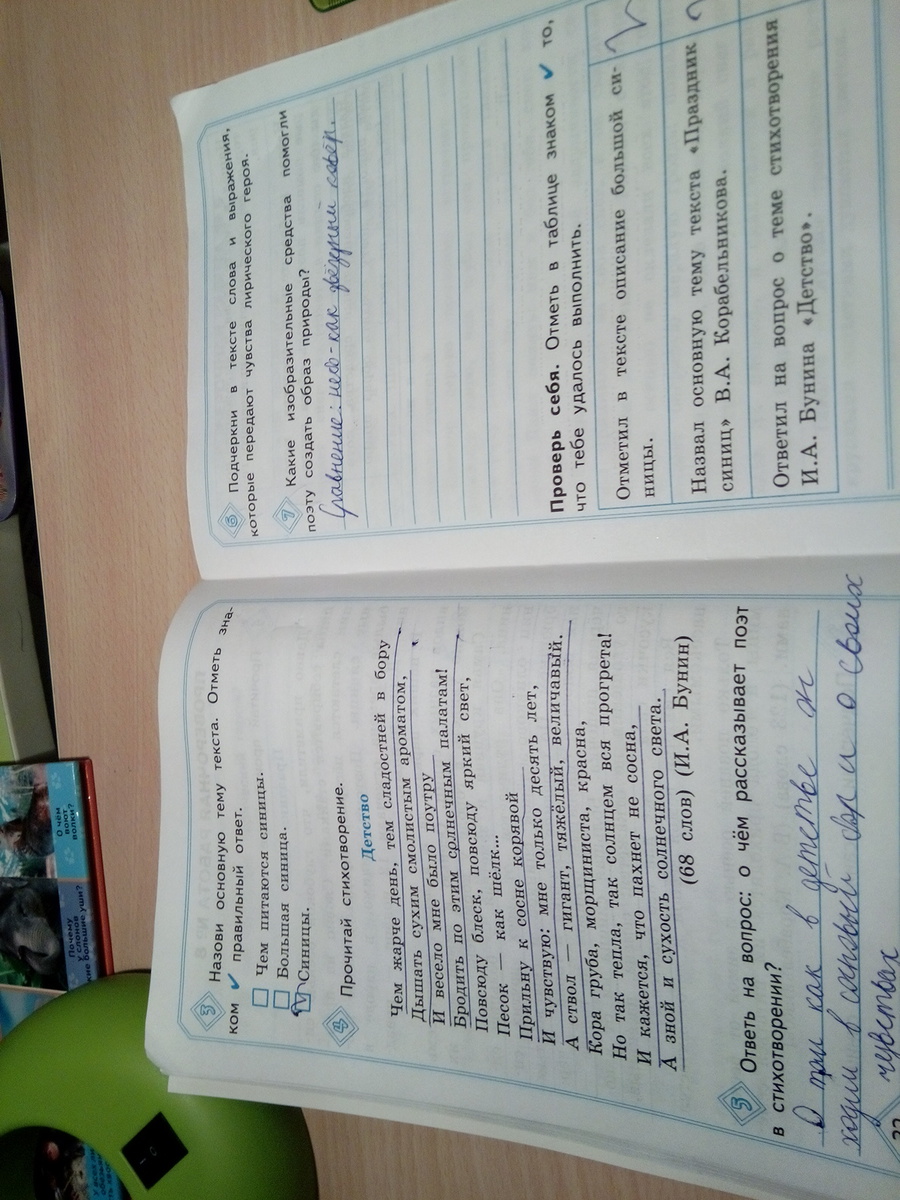 3 Назови основную тему текста. Отметь зна-
ком ✔ правильный ответ.
Чем питаются синицы.
Большая синица.
Синицы.
4 Прочитай стихотворение.
Детство
Чем жарче день, тем сладостней в бору
Дышать сухим смолистым ароматом,
И весело мне было поутру
Бродить по этим солнечным палатам!
Повсюду блеск, повсюду яркий свет,
Песок — как шёлк...
Прильну к сосне корявой
И чувствую: мне только десять лет,
А ствол — гигант, тяжёлый, величавый.
Кора груба, морщиниста, красна,
Но так тепла, так солнцем вся прогрета!
И кажется, что пахнет не сосна,
А зной и сухость солнечного света.
(68 слов) (И.А. Бунин)
5 Ответь на вопрос: о чём рассказывает поэт
в стихотворении?
О том как в детстве
ходил в сосновый бор и о своих
чувствах
6 Подчеркни в тексте слова и выражения,
которые передают чувства лирического героя.
7 Какие изобразительные средства помогли
поэту создать образ природы?
Сравнение: небо - как звёздный ковёр.
Проверь себя. Отметь в таблице знаком ✔ то,
что тебе удалось выполнить.
Отметил в тексте описание большой си-
ницы.
Назвал основную тему текста «Праздник
синиц» В.А. Корабельникова.
Ответил на вопрос о теме стихотворения
И.А. Бунина «Детство».
О чём
воют
волки?
Почему
у слонов
кие большие уши?